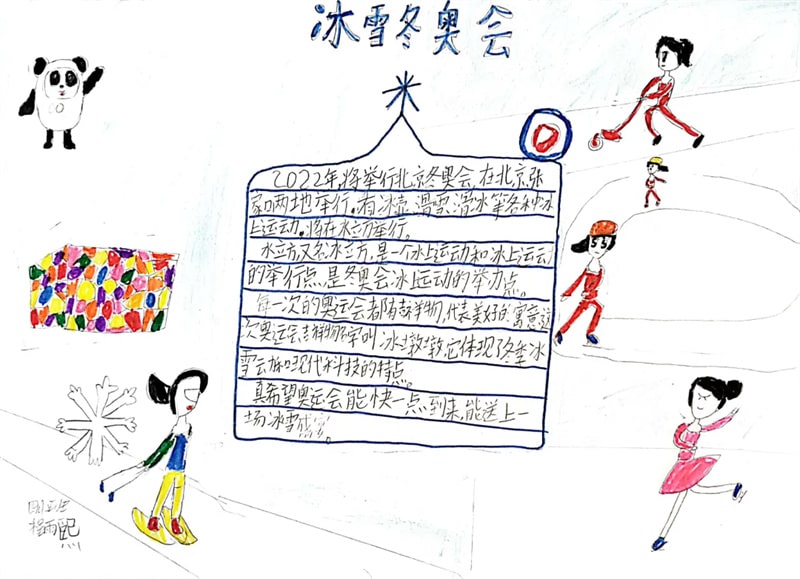 冰雪冬奥会
2022年,将举行北京冬奥会,在北京,张
家两地举行。有冰壶、滑雪、滑冰等各种冰
上运动。将在水立方举行。
水立方,又名冰立方,是一个冰上运动和冰上运动
的举行点,是冬奥会冰上运动的举办点。
每一次的奥运会都有吉祥物,代表美好的寓意,这
次奥运会吉祥物名字叫冰墩墩,它体现了冬季冰
雪运动和现代科技的特点。
真希望奥运会能快一点到来,能送上一
场冰雪盛宴。
四五班